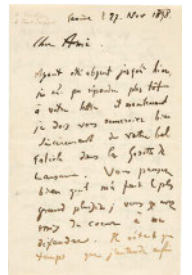 27 Nov 1898.
Cher Ami
ayant été absent jusqu'à hier,
je n'ai pu répondre plus tôt
à votre lettre. Et maintenant
je dois vous remercier bien
sincèrement de votre bel
article dans la Gazette de
Lausanne. Vous pensez
bien qu'il m'a fait le plus
grand plaisir, je vous
du coeur à me
défendre. Il était
temps que